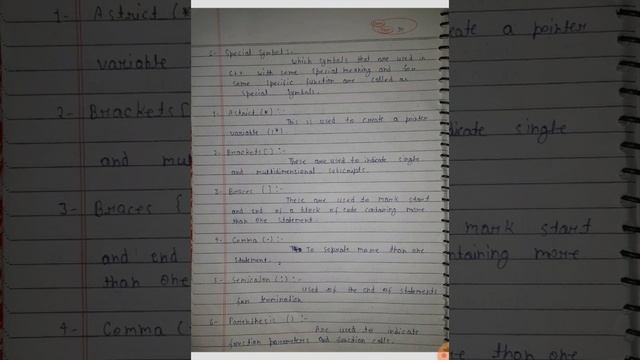 5- Special Symbol:-
Which symbols that are used in
C++ with some special meaning and for
some specific function are called as
special symbols.
1- Astrict (*) :-
This is used to create a pointer
variable (*)
2- Brackets [] :-
These are used to indicate single
and multidimensional subscripts.
3- Braces {} :-
These are used to mark start
and end of a block of code containing more
than one statement.
4- Comma (,) :-
To separate more than one
statement.
5- Semicolon (;) :-
Used of the end of statements
for termination
6- Parenthesis () :-
Are used to indicate
function parameters and function calls.
1- Astrict (*
variable
2- Brackets [
and mul
3- Braces {
and end
than one
4- Comma (
create a pointer
dicate single
mark start
ntaining more
e than one